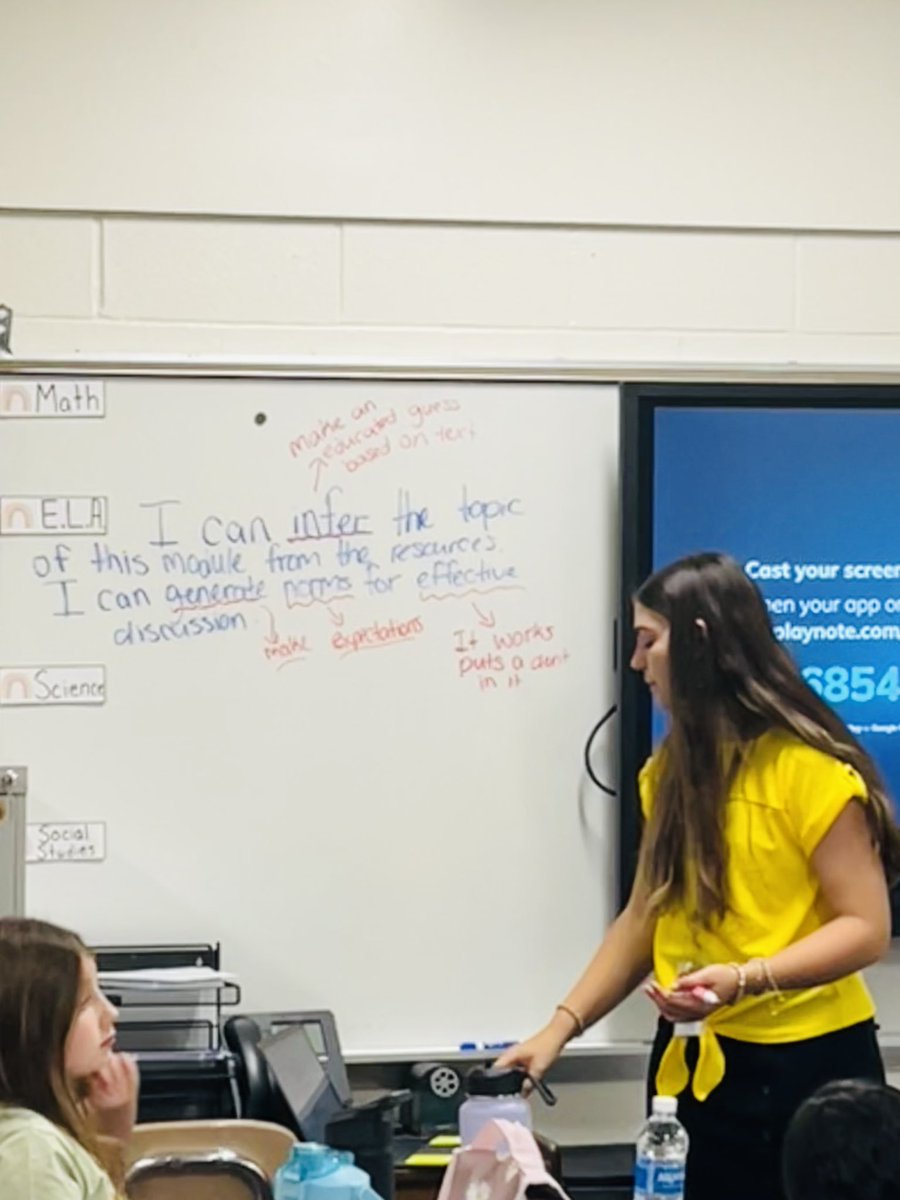 Math
make an
educated guess
based on text
E.L.A
I can infer the topic
of this module from the resources.
I can generate norms for effective
discussion.
make
expectations
It works
puts a dent
in it
Science
Social
Studies
Cast your screen
your app or
playnote.com
6854